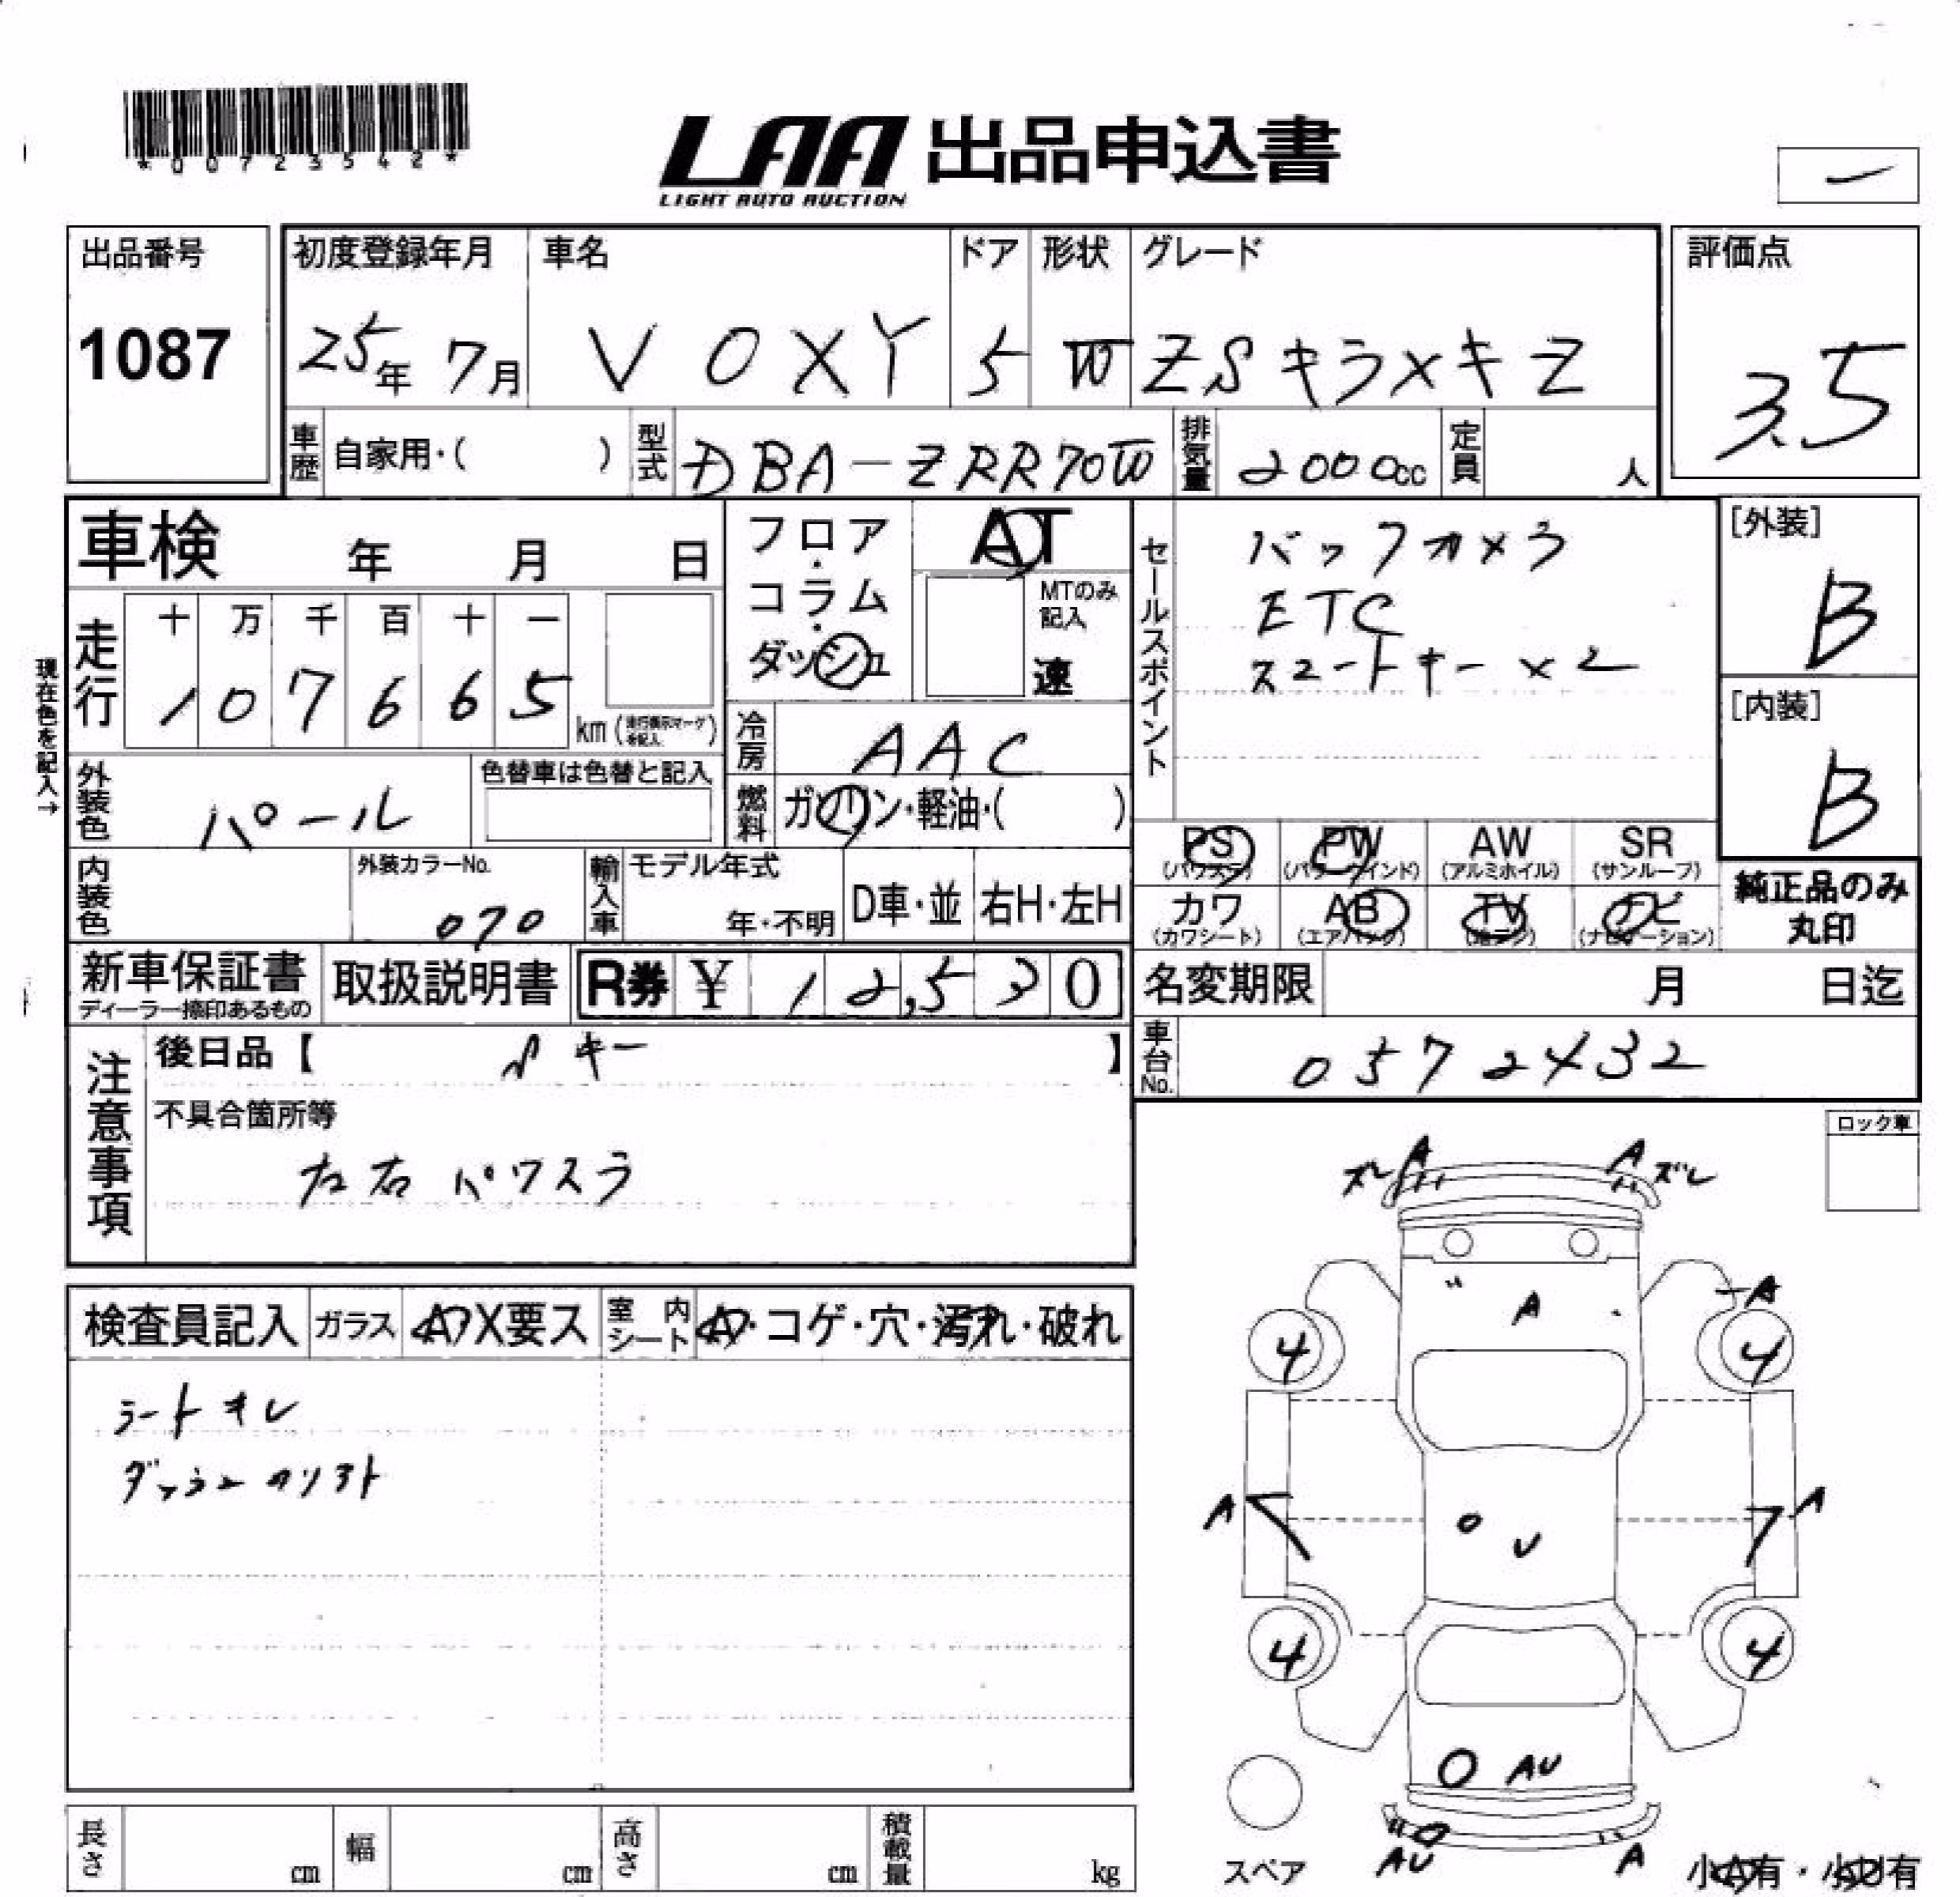 *00723542*
LAA 出品申込書
LIGHT AUTO AUCTION
出品番号 初度登録年月 車名 ドア 形状 グレード 評価点
1087 25年 7月 VOXY 5 W ZSキラメキZ 3.5
車歴 自家用・( ) 型式 DBA-ZRR70W 排気量 2000cc 定員 人
車検 年 月 日
フロア・コラム・ダッシュ
AT
MTのみ記入
速
セールスポイント
バックカメラ
ETC
スマートキー×2
[外装]
B
[内装]
B
現在色を記入→
走行 十 万 千 百 十 一
1 0 7 6 6 5 km (走行表示マークを記入)
冷房 AAC
外装色 パール 色替車は色替と記入
燃料 ガソリン・軽油・( )
PS (パワステ) PW (パワーウインド) AW (アルミホイル) SR (サンルーフ)
カワ (カワシート) AB (エアバッグ) TV (地デジ) ナビ (ナビゲーション)
純正品のみ
丸印
内装色 外装カラーNo. 070 輸入車 モデル年式 年・不明 D車・並 右H・左H
新車保証書 取扱説明書 R券 ¥ 12,530
ディーラー捺印あるもの
名変期限 月 日迄
車台No. 0572432
注意事項
後日品【 キー 】
不具合箇所等
左右パワスラ
ロック車
検査員記入 ガラス A・X要ス 室内シート A・コゲ・穴・汚れ・破れ
シートキレ
ダッシュカソリフト
ズレ A A ズレ
A -A
4 4
A A
U
4 4
AU
AU A
スペア
小A有・小U有
長さ cm 幅 cm 高さ cm 積載量 kg